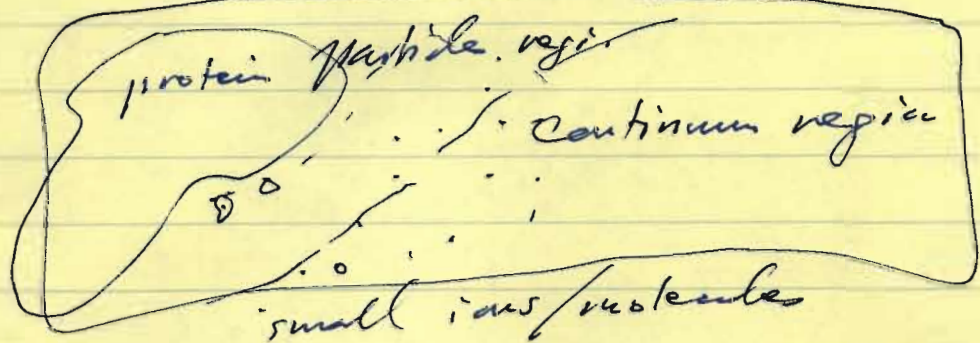 protein particle regi
continuum regin
small ions/molecules